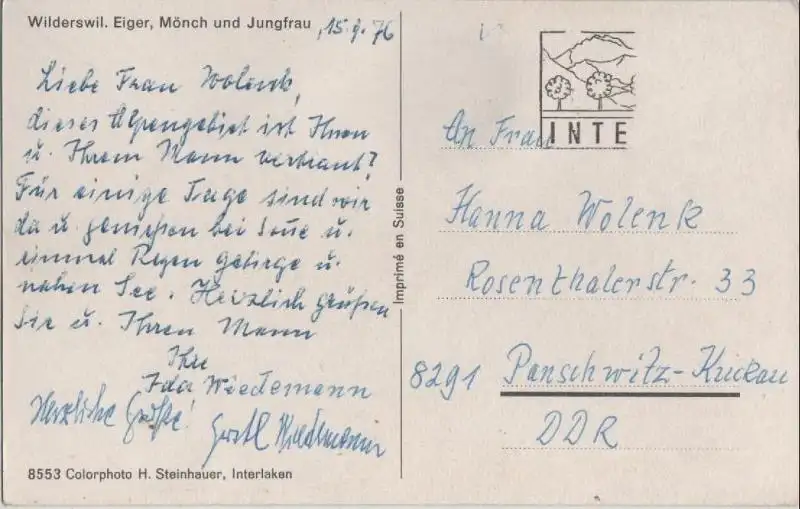 Wilderswil. Eiger, Mönch und Jungfrau
15.9.76
Liebe Frau Wolenk,
dieses Alpengebiet ist Ihnen
u. Ihrem Mann vertraut?
Für einige Tage sind wir
da u. genießen bei Sonne u.
einmal Regen Gebirge u.
nahen See. Herzlich grüßen
Sie u. Ihren Mann
Ihre
Ida Wiedemann
Herzliche Grüße!
Wiedemann
8553 Colorphoto H. Steinhauer, Interlaken
Imprimé en Suisse
INTE
An Frau
Hanna Wolenk
Rosenthalerstr. 33
8291 Panschwitz-Kuckau
DDR